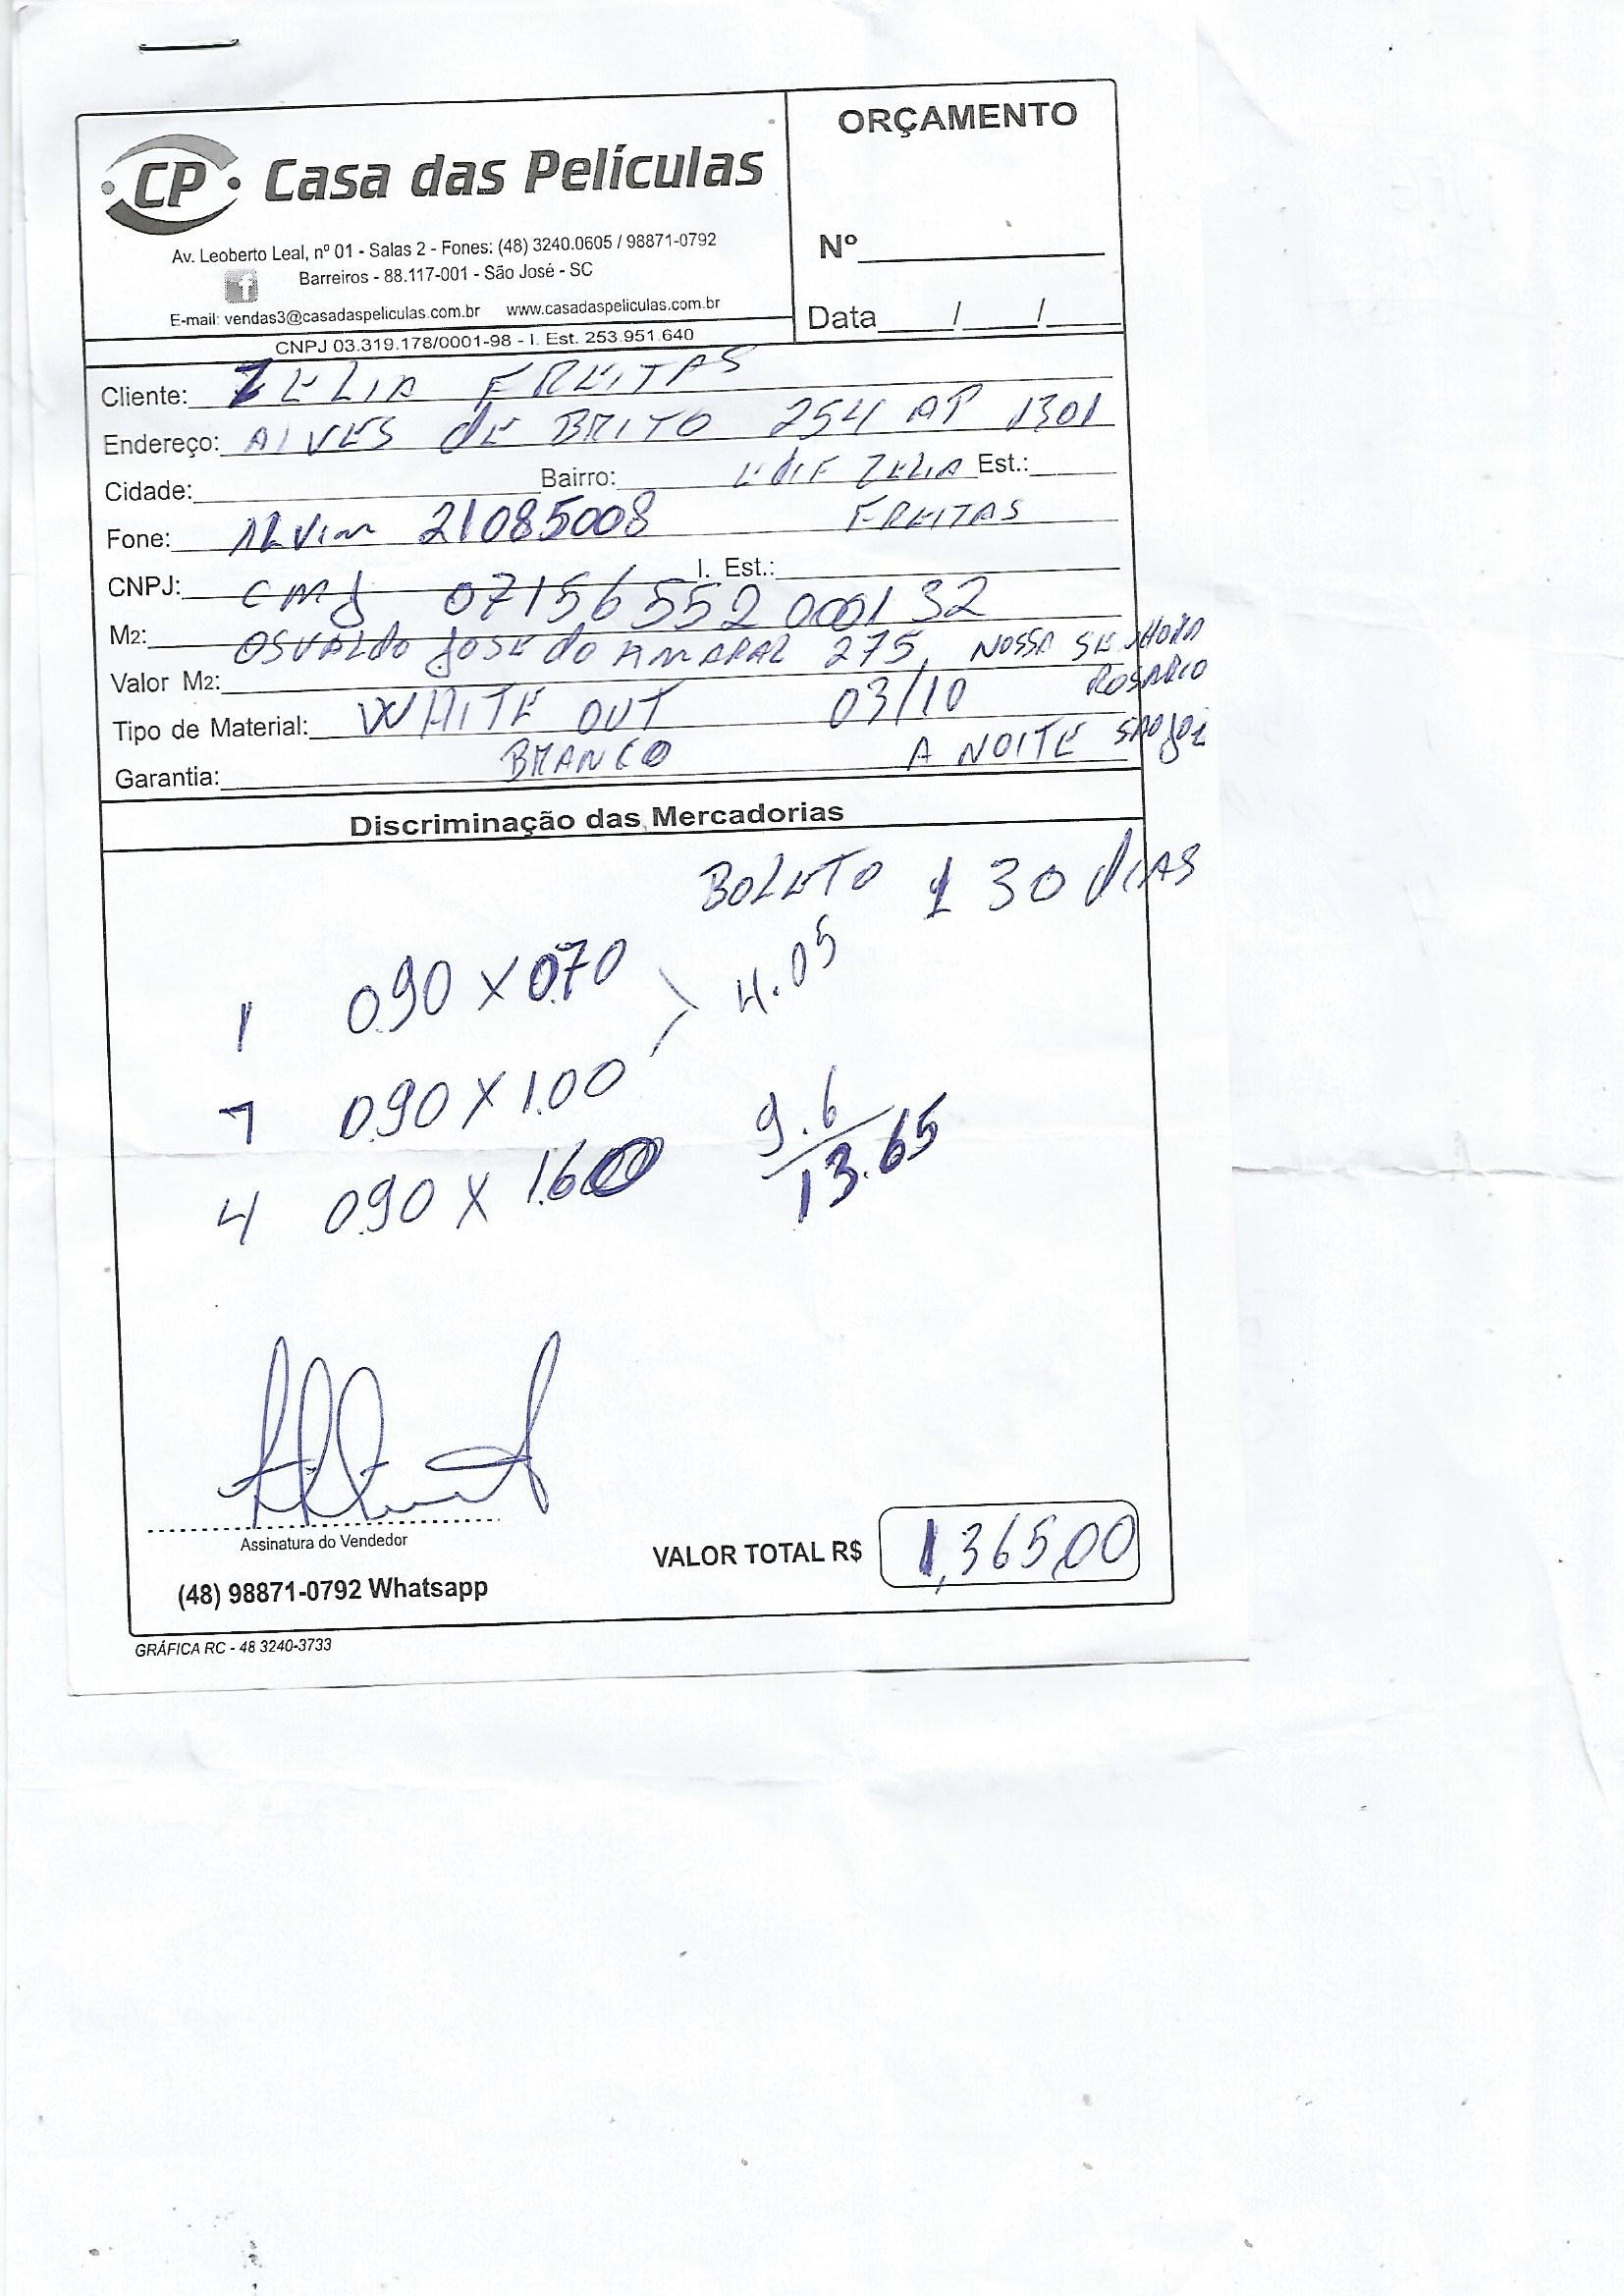 CP Casa das Películas
ORÇAMENTO
Av. Leoberto Leal, nº 01 - Salas 2 - Fones: (48) 3240.0605 / 98871-0792
Barreiros - 88.117-001 - São José - SC
E-mail: vendas3@casadaspeliculas.com.br www.casadaspeliculas.com.br
CNPJ 03.319.178/0001-98 - I. Est. 253.951.640
Nº
Data / /
Cliente: ZELIA FREITAS
Endereço: ALVES dE BRITO 254 AP 1301
Cidade: Bairro: EdIF ZELIA Est.:
FREITAS
Fone: ALVIM 21085008
CNPJ: I. Est.:
CMJ 07156552000132
M2: OSVALdO JOSE dO AMARAL 275, NOSSA SENHORA
ROSARIO
Valor M2:
Tipo de Material: WHITE OUT 03/10
BRANCO A NOITE SAO JOSE
Garantia:
Discriminação das Mercadorias
BOLETO 1 30 dIAS
1 0.90 X 0.70
4.05
0.90 X 1.00
4 0.90 X 1.60
9.6
13.65
Assinatura do Vendedor
VALOR TOTAL R$ 1,365,00
(48) 98871-0792 Whatsapp
GRÁFICA RC - 48 3240-3733